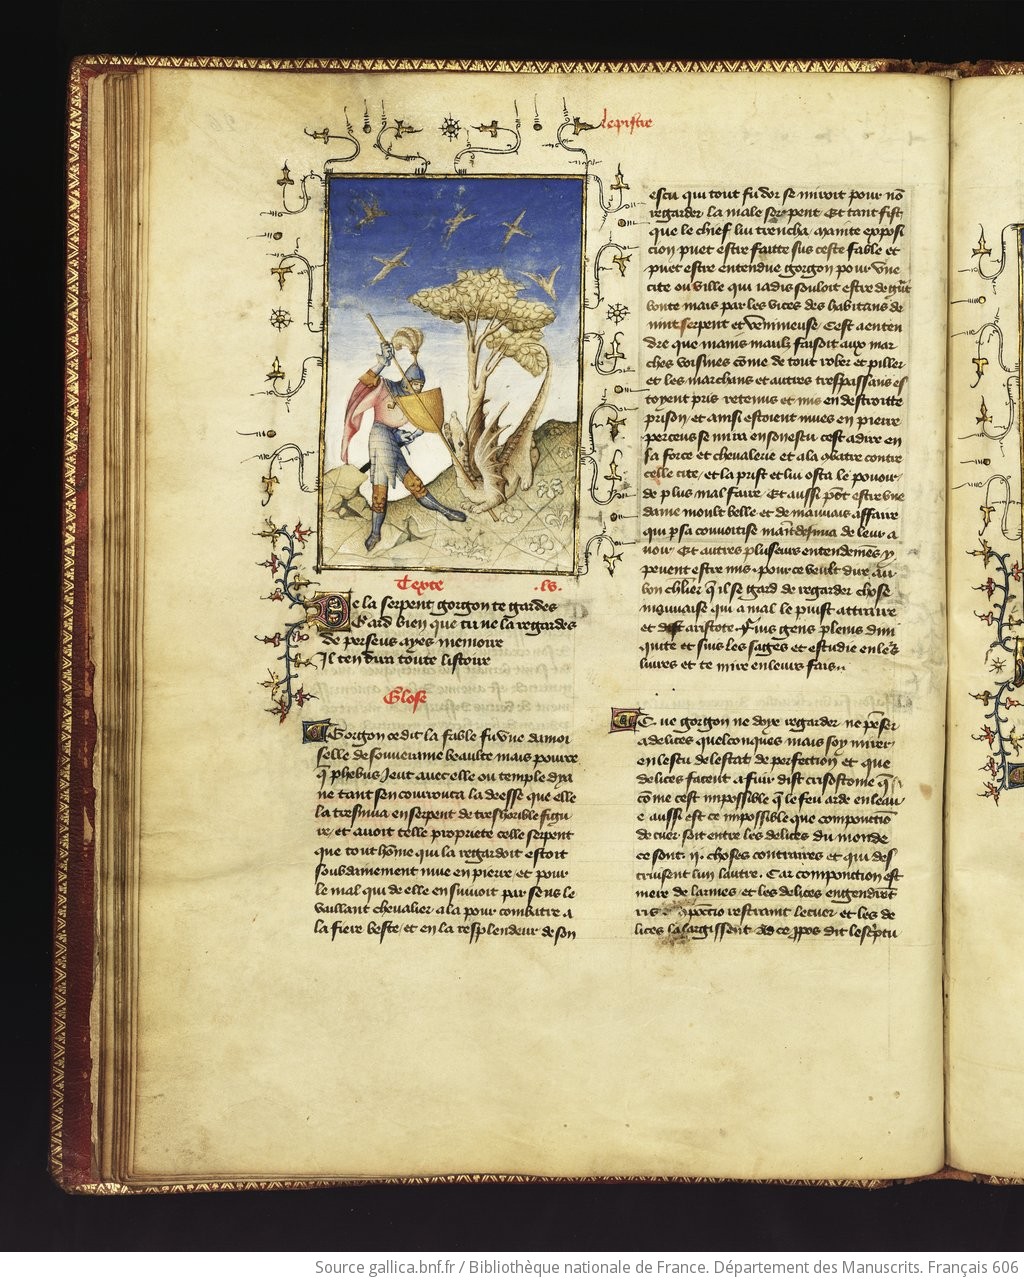 lepistre
Texte .lv.
De la serpent gorgon te gardes
Gard bien que tu ne la regardes
de perseus ayes memoire
Il ten dira toute listoire
Glose
Gorgon ce dit la fable fu une damoi
selle de souveraine beaulte mais pource
q̄ phebus Jeut avec elle ou temple dya
ne tant sen courrouca la deesse que elle
la tresmua en serpent de treshorrible figu
re/ et avoit telle propriete celle serpent
que tout hōme qui la regardoit estoit
soubdainement mue en pierre et pour
le mal qui de elle ensuivoit perseus le
vaillant chevalier ala pour combatre a
la fiere beste/ et en la resplendeur de son
escu qui tout fu dor se miroit pour nō
regarder la male serpent Et tant fist
que le chief lui trencha mainte exposi
cion puet estre faitte sus ceste fable et
puet estre entendue gorgon pour une
cite ou ville qui iadis souloit estre de grāt
bonte mais par les vices des habitans de
vint serpent et venimeuse Cest a enten
dre que mains maulz faisoit aux mar
ches voisines cōme de tout rober et piller
et les marchans et autres trespassans es
toyent pris retenus et mis en destroitte
prison/ et ainsi estoient mues en pierre
perceus se mira en son escu cest a dire en
sa force et chevalerie et ala cōbatre contre
celle cite/ et la prist et lui osta le pouoir
de plus mal faire Et aussi poet estre une
dame moult belle et de mauvais affaire
qui p sa couvoitise maint desnua de leur a
voir Et autres plusieurs entendemēs y
peuent estre mis pour ce veult dire au
bon chlier q̄ il se gard de regarder chose
mauvaise qui a mal le puist attraire
et dist aristote fuis gens pleins dini
quite et suis les sages et estudie en leˢ
livres et te mire en leurs fais..
Que gorgon ne doye regarder ne pēser
a delices quelconques mais soy mirer
en lescu de lestat de perfection et que
delices facent a fuir dist crisostome q̄
cōme cest impossible q̄ le feu arde en leau
aussi est ce impossible que compunctiō
de cuer soit entre les delices du monde
ce sont .ii. choses contraires et qui des
truisent lun lautre. Car compunction est
mere de larmes/ et les delices engendrēt
ris restraint le cuer et les de
lices le largissent Ad ce ppos dit lescptu
Source gallica.bnf.fr / Bibliothèque nationale de France. Département des Manuscrits. Français 606